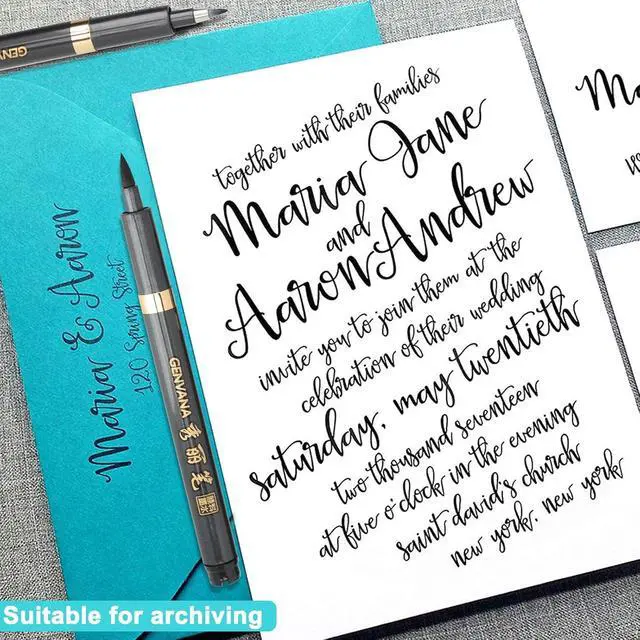 GENVANA
together with their families
Maria Jane
and
Aaron Andrew
invite you to join them at the
celebration of their wedding
saturday, may twentieth
two thousand seventeen
at five o'clock in the evening
saint david's church
new york, new york
Maria & Aaron
120 Spring Street
GENVANA 秀丽笔
Ma
Suitable for archiving